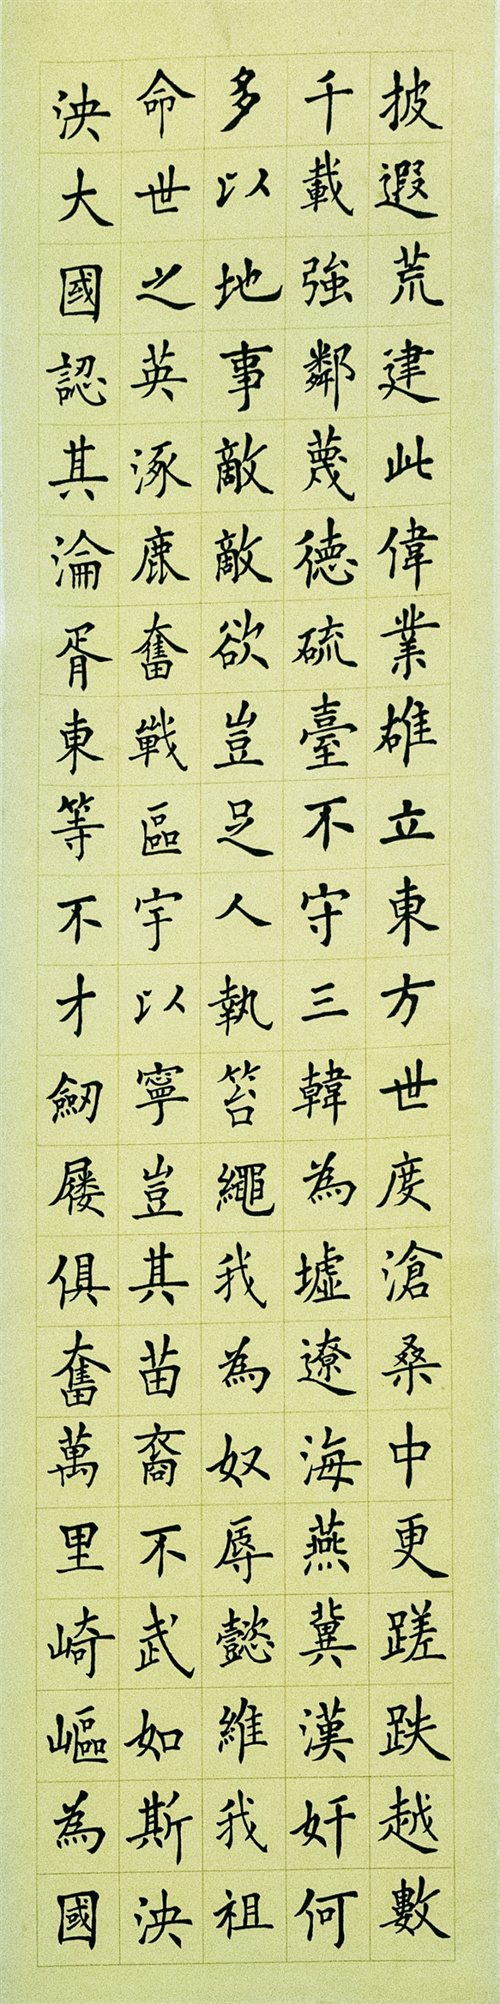 披遐荒建此偉業雄立東方世度滄桑中更蹉跌越數
千載強鄰蔑德硫臺不守三韓為墟遼海燕冀漢奸何
多以地事敵敵欲豈足人執笞繩我為奴辱懿維我祖
命世之英涿鹿奮戰區宇以寧豈其苗裔不武如斯泱
泱大國認其淪胥東等不才劒屨俱奮萬里崎嶇為國